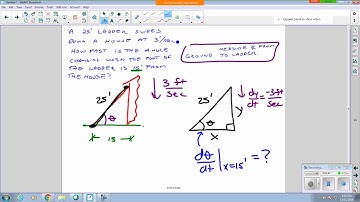 A 25' LADDER SLIDES
DOWN A HOUSE AT 3'/SEC.
HOW FAST IS THE ANGLE
CHANGING WHEN THE FOOT OF
THE LADDER IS 15' FROM
THE HOUSE?
MEASURE θ FROM
GROUND TO LADDER.
25'
θ
15
↓ 3 ft/sec
25'
θ
x
y
↓ dy/dt = -3 ft/sec
dθ/dt | x=15' = ?